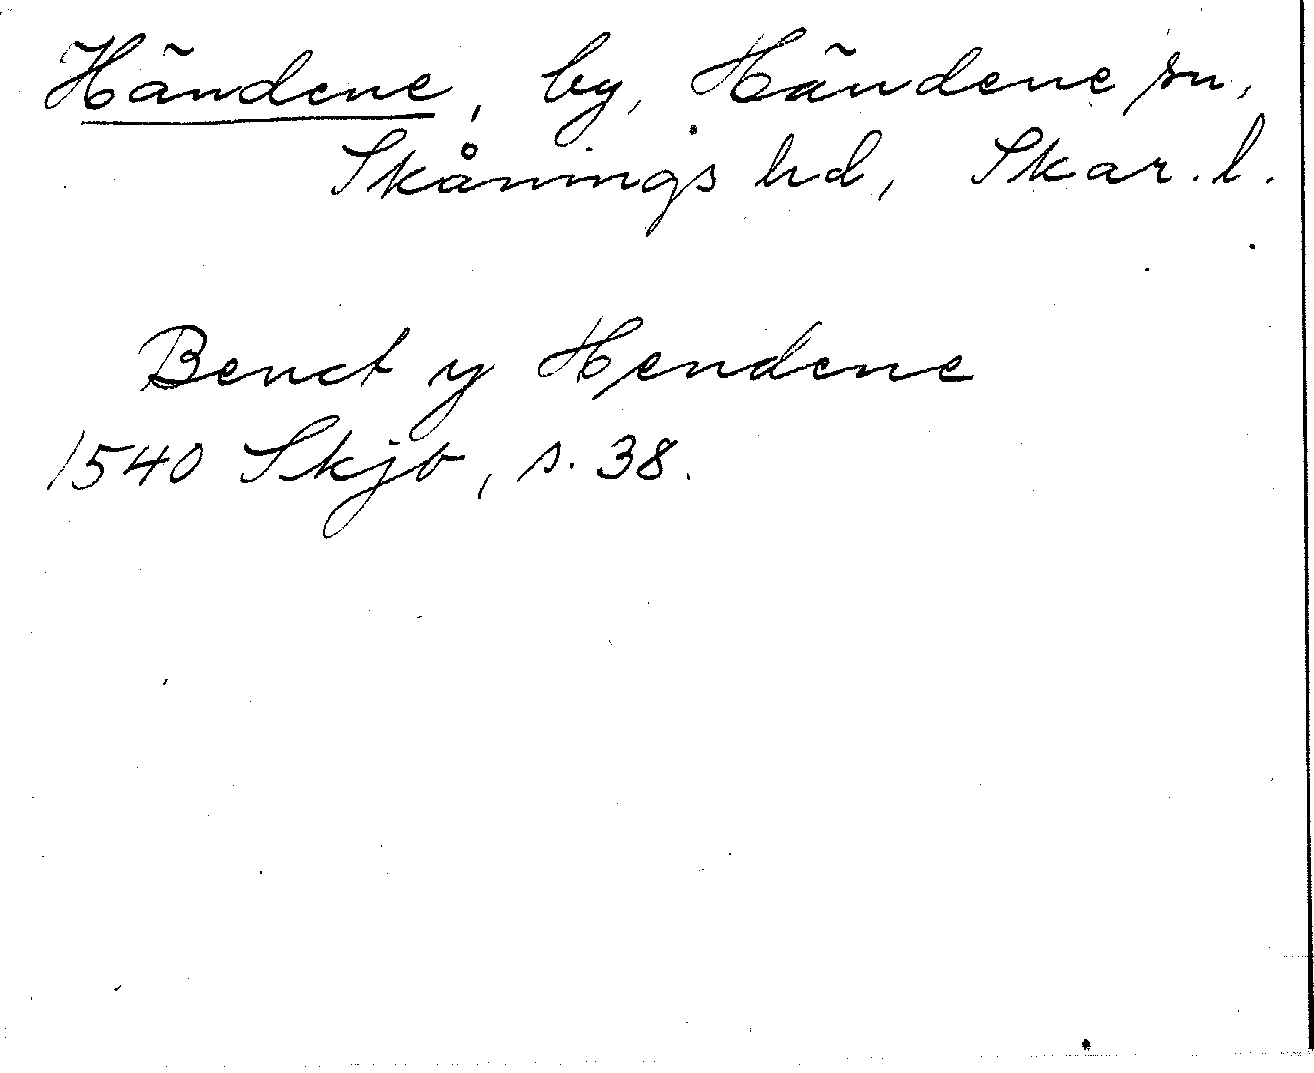 Händene, by, Händene sn,
Skånings hd, Skar. l.
Benct y Hendene
1540 Skjb, s. 38.